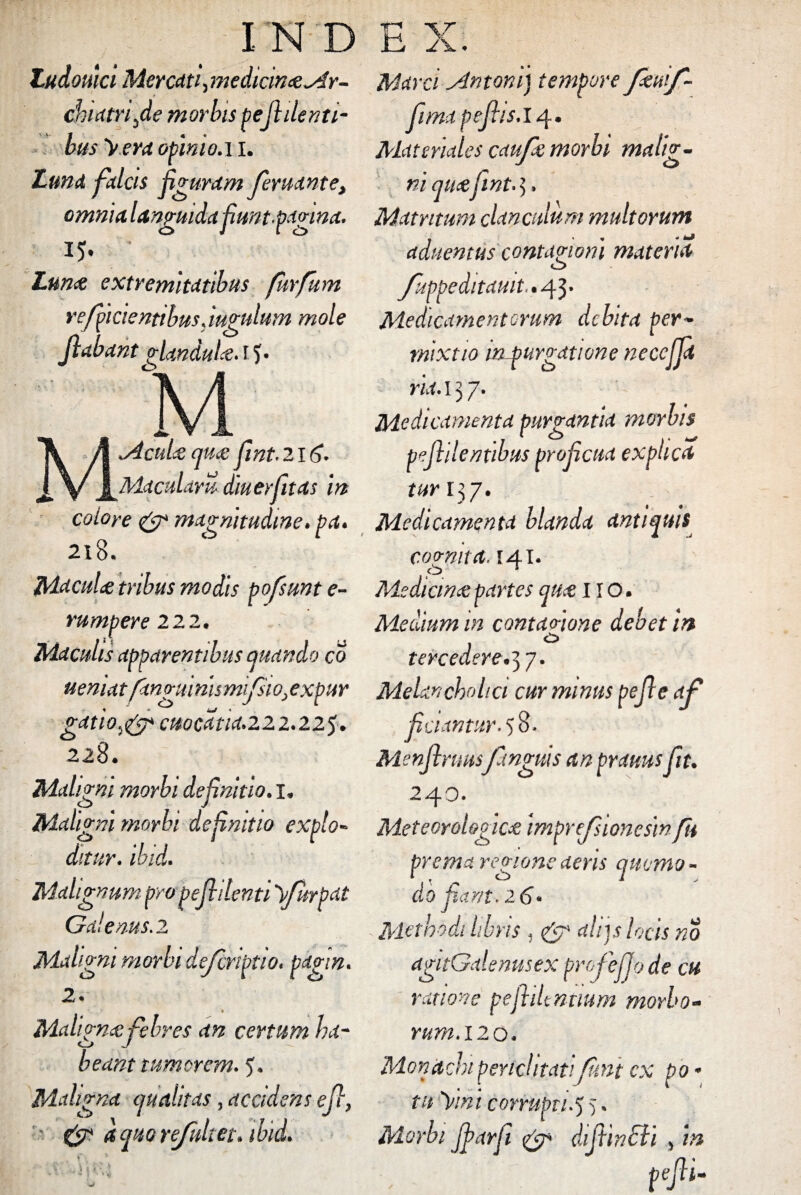 INDEX.
Ludouici Mercati, medicinæ Ar-
chiatri, de morbis pestilenti-
bus vera opinio. 11.
Luna falcis figuram seruante,
omnia languida fiunt. pagina.
15.
Lunæ extremitatibus sursum
respicientibus, iugulum mole
stabant glandulæ. 15.
M
MAculæ quæ sint. 216.
Macularũ diuersitas in
colore & magnitudine. pa.
218.
Maculæ tribus modis possunt e-
rumpere 222.
Maculis apparentibus quando cõ
ueniat sanguinis missio, expur
gatio, & euocatia. 222. 225.
228.
Maligni morbi definitio. 1.
Maligni morbi definitio explo-
ditur. ibid.
Malignum pro pestilenti vsurpat
Galenus. 2
Maligni morbi descriptio. pagin.
2.
Malignæ febres an certum ha-
beant tumorem. 5.
Maligna qualitas, accidens est,
& à quo resultet. ibid.
Marci Antonij tempore sæuis-
sima pestis. 14.
Materiales causæ morbi malig-
ni quæ sint. 3.
Matritum clanculùm multorum
aduentus contagioni materiã
suppeditauit. 43.
Medicamentorum debita per-
mixtio in purgatione necessa
ria. 137.
Medicamenta purgantia morbis
pestilentibus proficua explicã
tur 137.
Medicamenta blanda antiquis
cognita. 141.
Medicinæ partes quæ 110.
Medium in contagione debet in
tercedere. 37.
Melancholici cur minus peste af
ficiantur. 58.
Menstruus sanguis an prauus sit.
240.
Meteorologicæ impressiones in su
prema regione aeris quomo-
dò fiant. 26.
Methodi libris, & alijs locis nõ
agit Galenus ex professo de cu
ratione pestilentium morbo-
rum. 120.
Monachi periclitati sunt ex po-
tu vini corrupti. 55.
Morbi sparsi & distincti, in
pesti-